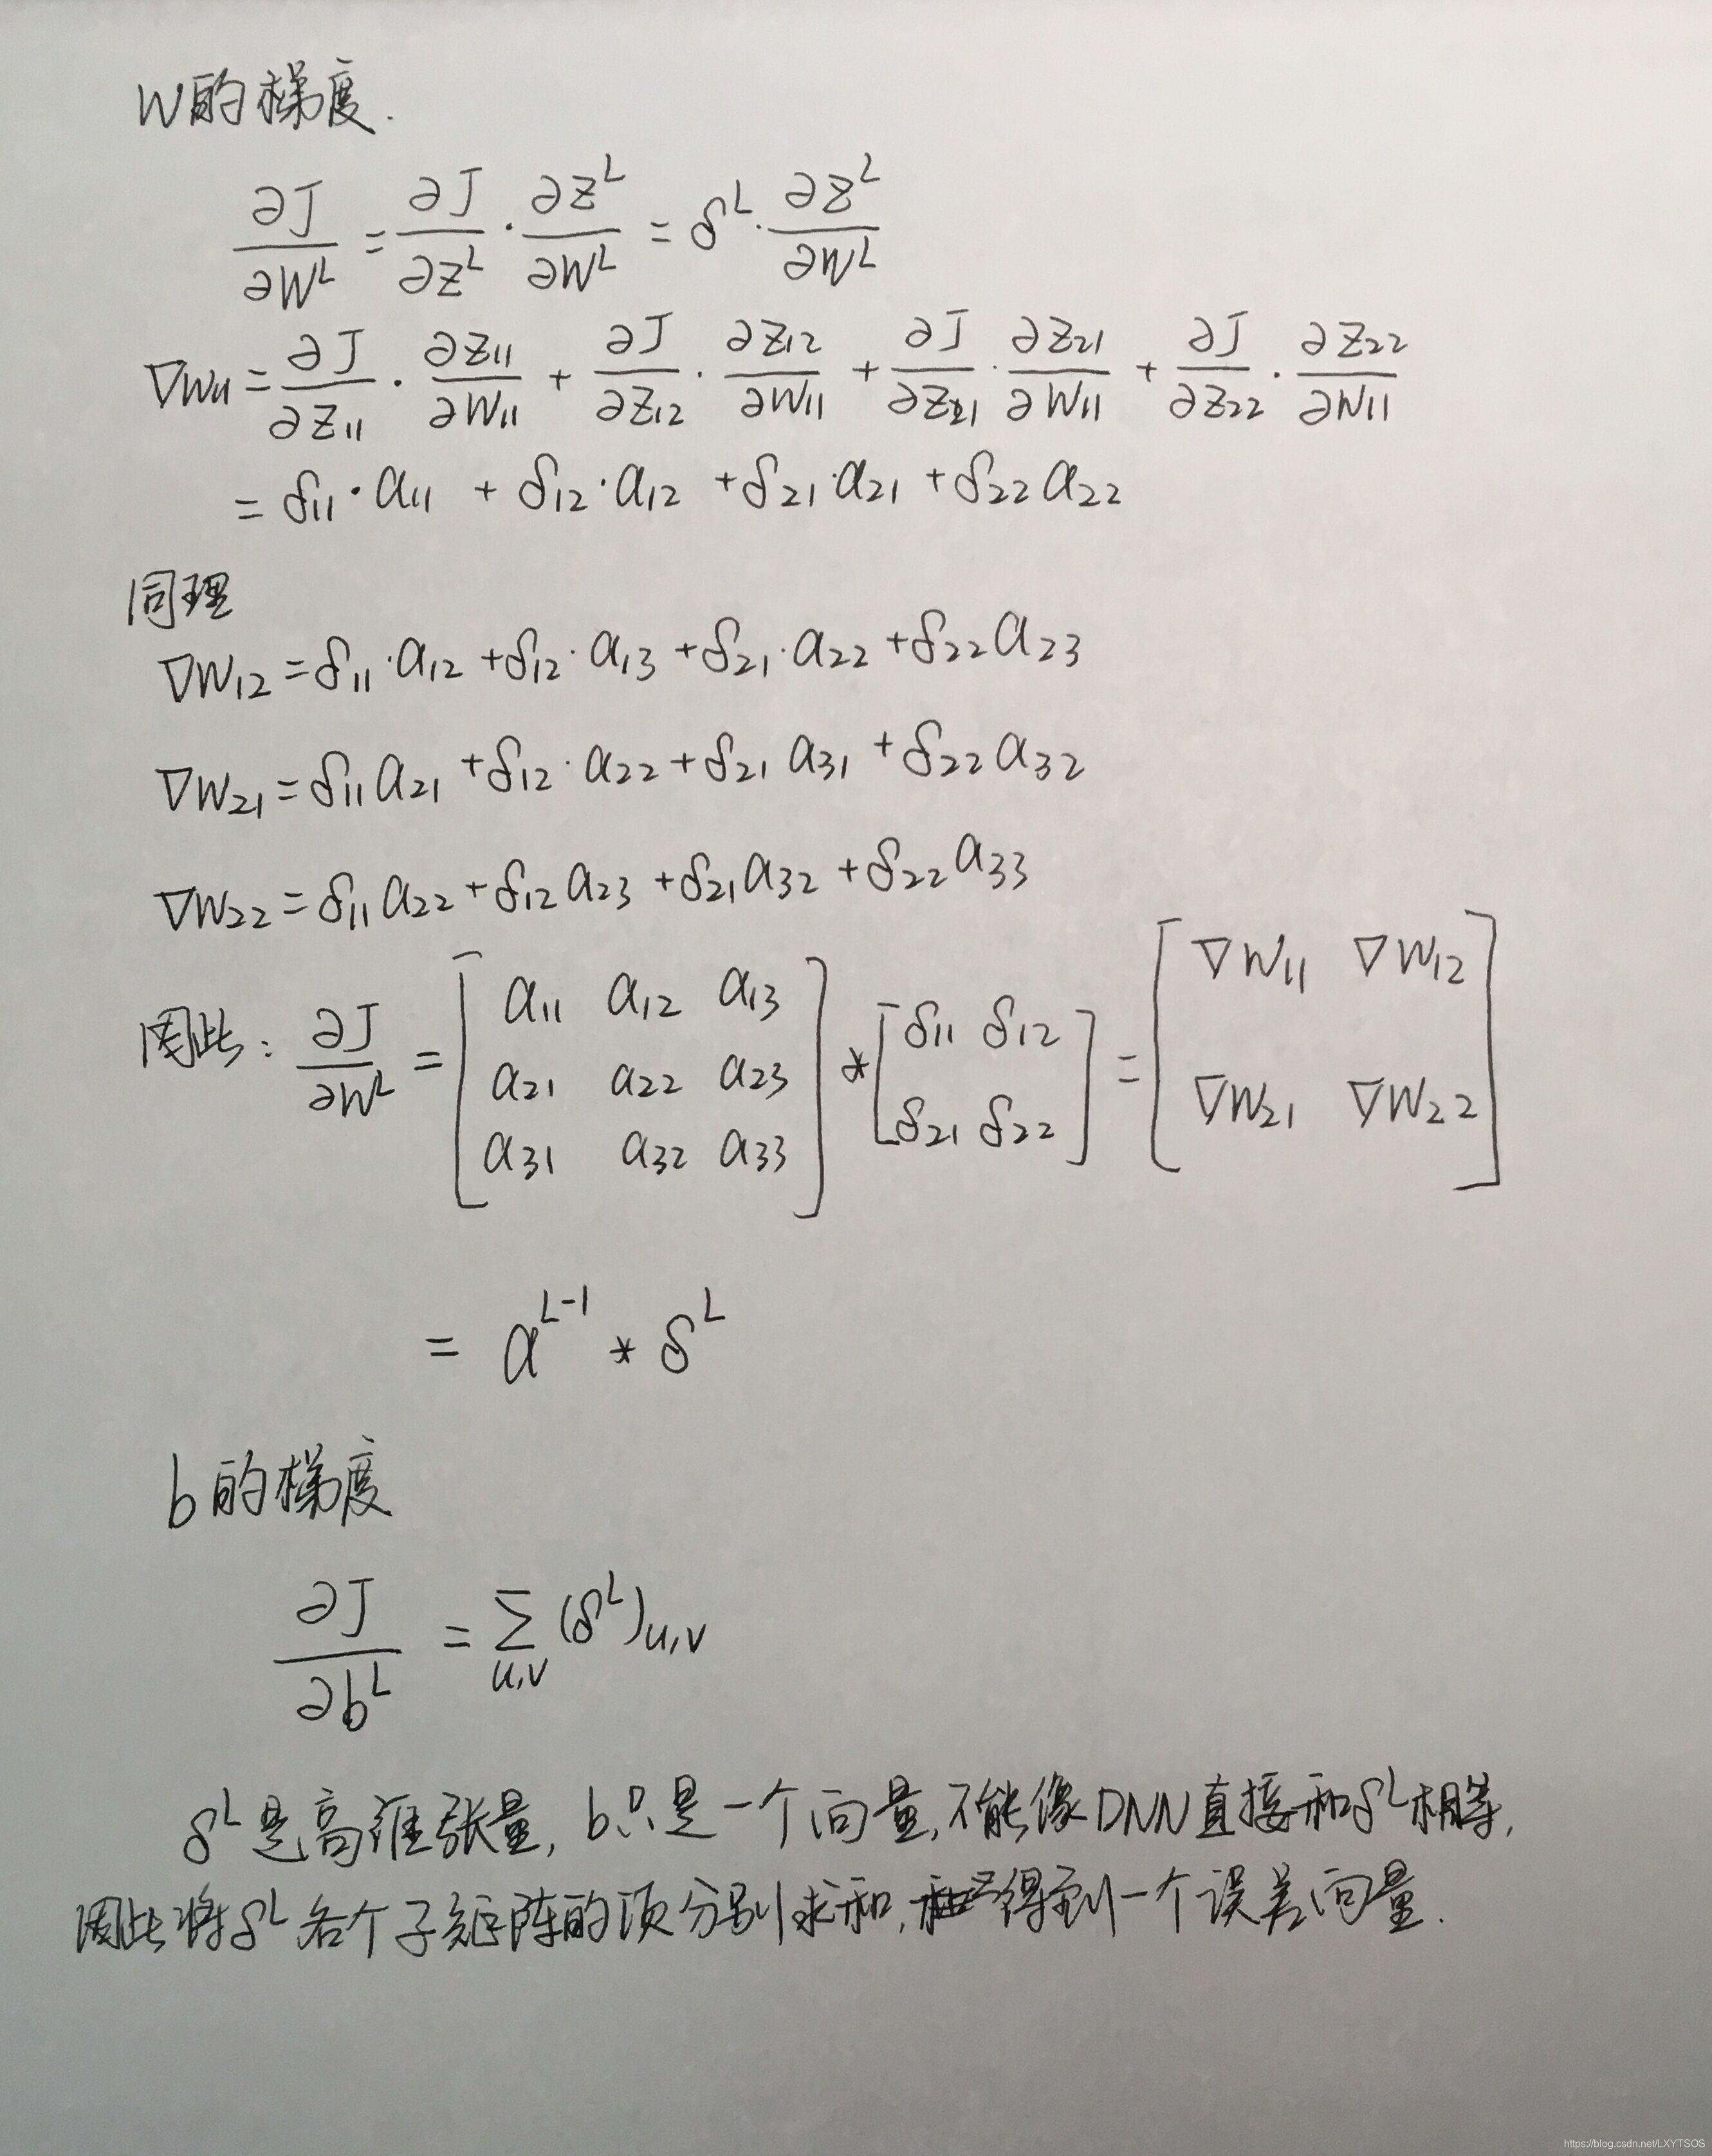 W的梯度.
∂J/∂W^L = ∂J/∂z^L · ∂z^L/∂W^L = δ^L · ∂z^L/∂W^L
∇W11 = ∂J/∂z11 · ∂z11/∂W11 + ∂J/∂z12 · ∂z12/∂W11 + ∂J/∂z21 · ∂z21/∂W11 + ∂J/∂z22 · ∂z22/∂W11
= δ11·a11 + δ12·a12 + δ21·a21 + δ22a22
同理
∇W12 = δ11·a12 + δ12·a13 + δ21·a22 + δ22a23
∇W21 = δ11a21 + δ12·a22 + δ21a31 + δ22a32
∇W22 = δ11a22 + δ12a23 + δ21a32 + δ22a33
因此: ∂J/∂W^L = [a11 a12 a13; a21 a22 a23; a31 a32 a33] * [δ11 δ12; δ21 δ22] = [∇W11 ∇W12; ∇W21 ∇W22]
= a^(L-1) * δ^L
b的梯度
∂J/∂b^L = Σ_{u,v} (δ^L)_{u,v}
δ^L是高维张量, b只是一个向量,不能像DNN直接和δ^L相等,
因此将δ^L各个子矩阵的项分别求和,得到一个误差向量.
https://blog.csdn.net/LXYTSOS